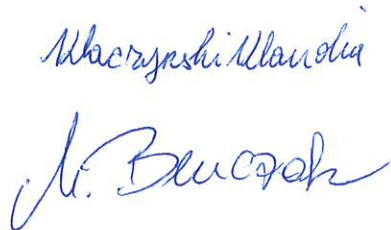 Klaczyński Klaudia
M. Benczak